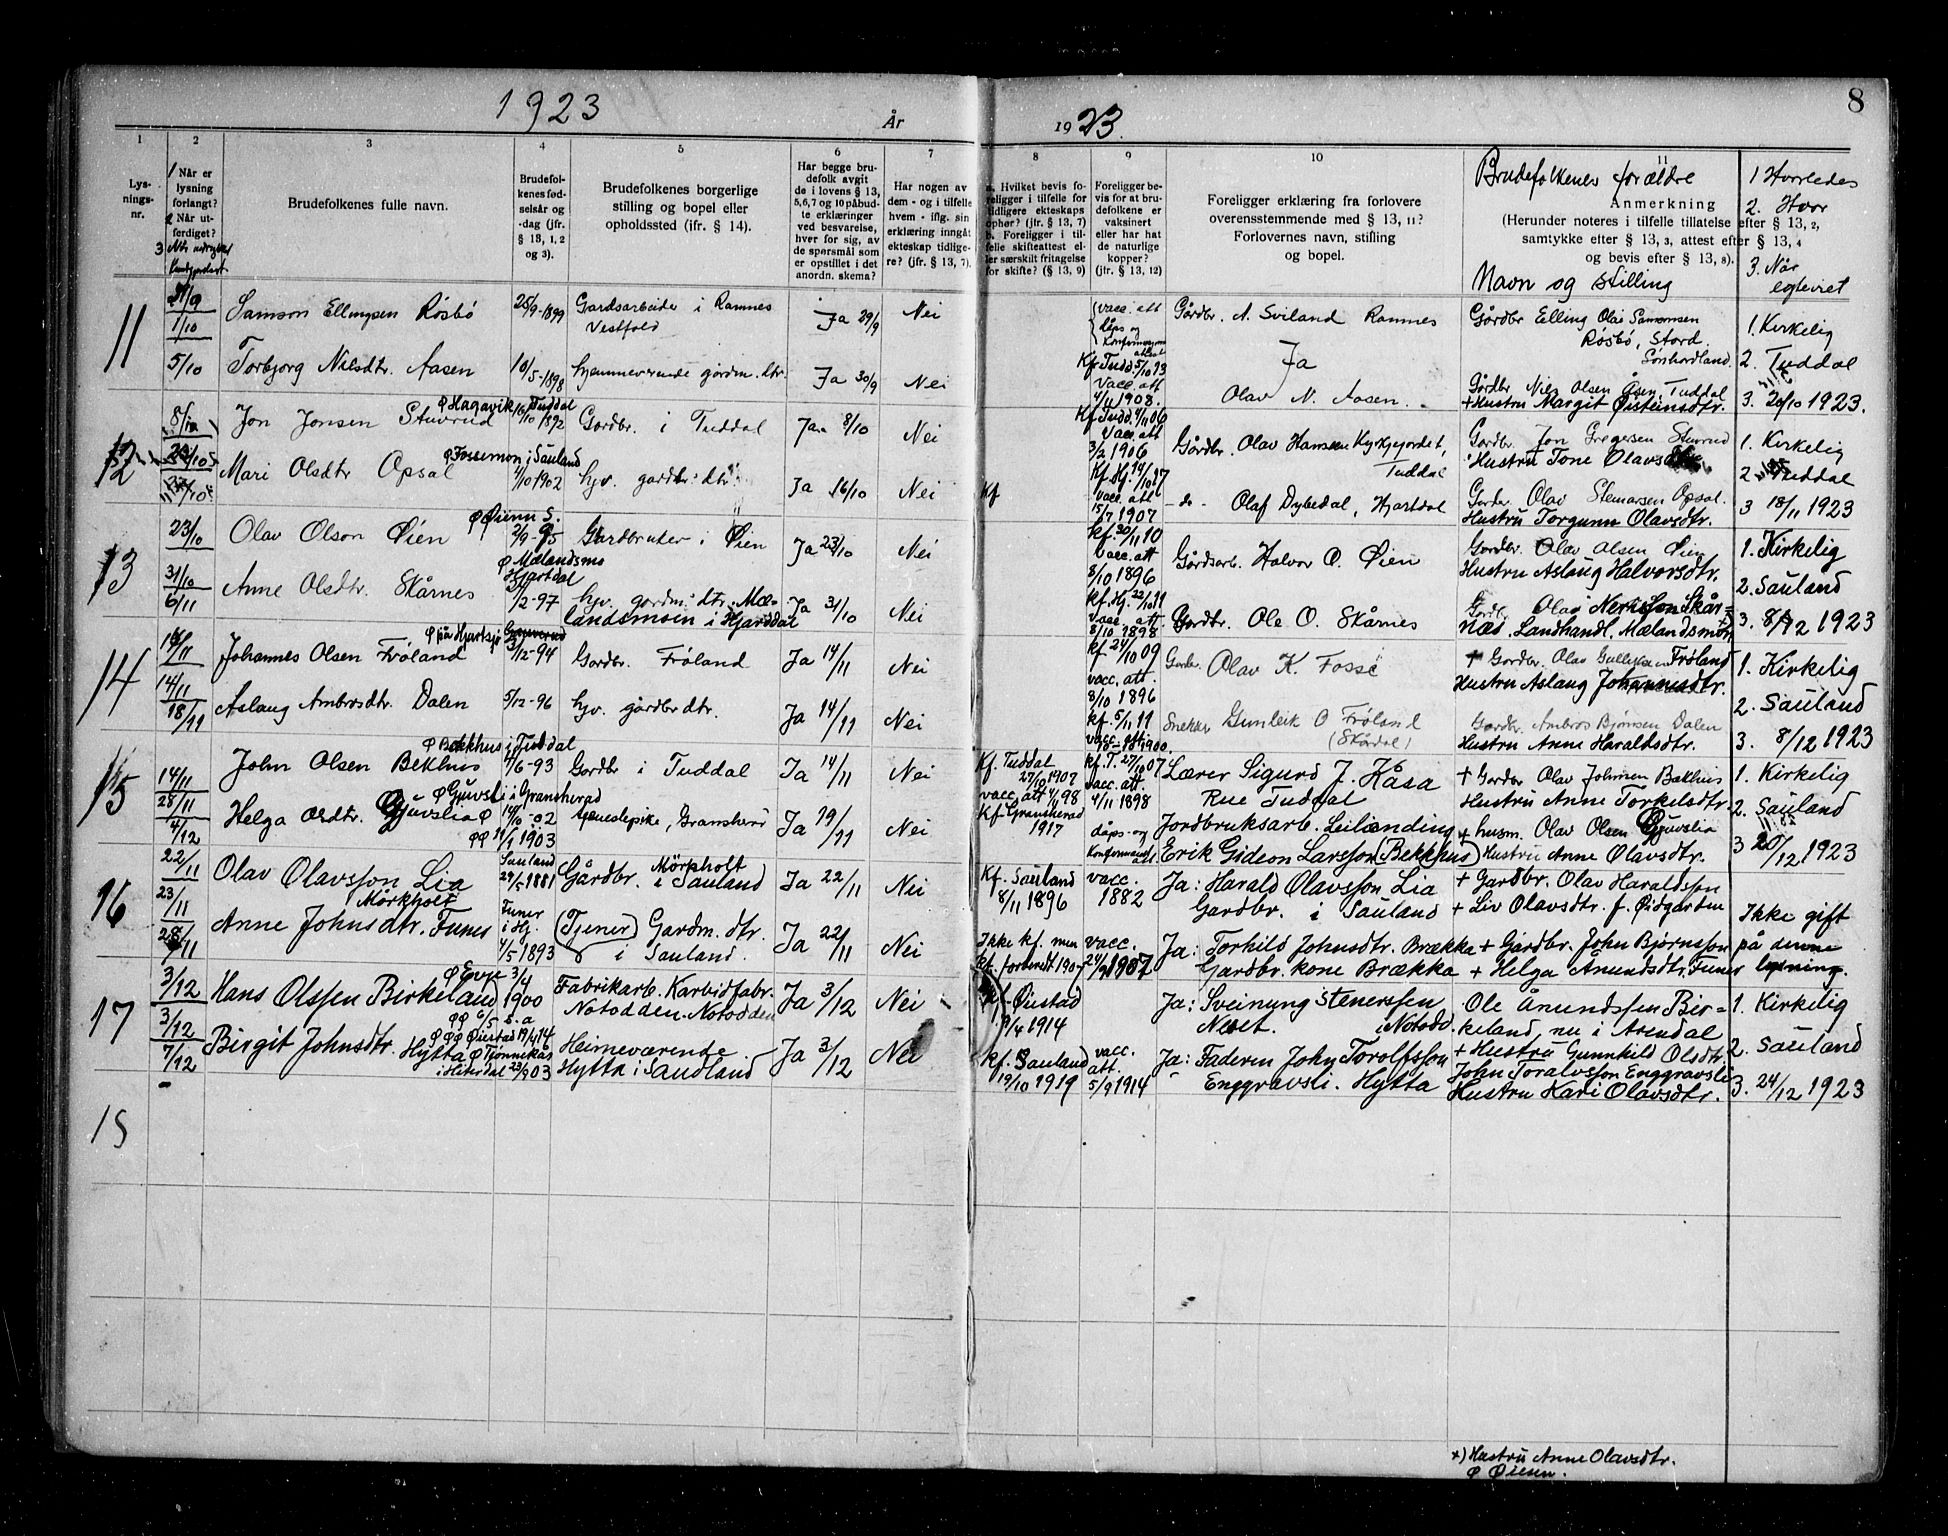 1923
År
1923.
8
1
2
3
4
5
6
7
8
9
10
11
Lys-
nings-
nr.
1 Når er
lysning
forlangt?
2 Når ut-
ferdiget?
3
Brudefolkenes fulle navn.
Brudefol-
kenes fød-
selsår og
-dag (jfr.
§ 13, 1, 2
og 3).
Brudefolkenes borgerlige
stilling og bopel eller
opholdssted (ifr. § 14).
Har begge bru-
defolk avgit
de i lovens § 13,
5, 6, 7 og 10 påbud-
te erklæringer
ved besvarelse,
hver for sig, av
de spørsmål som
er opstillet i det
anordn. skema?
Har nogen av
dem - og i tilfelle
hvem - iflg. sin
erklæring inngått
ekteskap tidlige-
re? (jfr. § 13, 7).
a. Hvilket bevis fo-
religger i tilfelle for
tidligere ekteskaps
ophør? (jfr. § 13, 7)
b. Foreligger i til-
felle skifteattest el-
ler særskilt fritagelse
for skifte? (§ 13, 9)
Foreligger be-
vis for at bru-
defolkene er
vaksinert
eller har hat
de naturlige
kopper?
(jfr. § 13, 12)
Foreligger erklæring fra forlovere
overensstemmende med § 13, 11?
Forlovernes navn, stilling
og bopel.
Brudefolkenes forældre
Anmerkning
(Herunder noteres i tilfelle tillatelse efter § 13, 2,
samtykke efter § 13, 3, attest efter § 13, 4
og bevis efter § 13, 8).
Navn og stilling
1 Hvorledes
2. Hvor
3. Når
egteviet
11
1/10
Samson Ellingsen Røsbø
25/9-1899
Gardsarbeide i Ramnes
Vestfold
Ja 29/9
Nei
vacc. att
Dåps og
Konfirmasjons
attest
Gårdbr. N. Sviland Ramnes
Gårdbr Elling Olai Samsonsen
Røsbø, Stord.
Sønhordland.
1. Kirkelig
5/10
Torbjorg Nilsdtr. Aasen
10/5-1898
hjemmeværende gårdm. dtr.
Ja 30/9
Nei
Kf. Tudd 5/10 13
Vacc. att
4/11 1908.
Ja
Olav N. Aasen.
Gårdbr Nils Olsen Åsen, Tuddal
+Hustru Margit Øisteinsdtr.
2. Tuddal
3. 20/10 1923.
12
8/10
Jon Jonsen Stuvrud
φ Hagavik, Tuddal
16/10 1892
Gordbr. i Tuddal
Ja 8/10
Nei
Kf Tudd. 4/11 06
Vacc. att
3/2 1906
Gårdbr. Olav Hansen Kyrkjejordet,
Tuddal
Gordbr. Jon Gregersen Stuvrud
Hustru Tone Olavsdtr.
1. Kirkelig
Mari Olsdtr Opsal
φ Fossemon i Sauland
4/10 1902
hjv. gardbr. dtr.
Ja 16/10
Nei
Kf
Kf. Hj. 14/10 17
vacc. att
15/7 1907
- do - Olaf Dybedal, Hjartdal
Gordbr Olav Stemarsen Opsal.
Hustru Torgunn Olavsdtr.
2 Tuddal
3 18/11 1923
13
23/10
Olav Olson Øien
φ Øienn S.
2/9-95
Gardbruker i Øien
Ja 23/10
Nei
kf. 30/11 10
Vacc. att
8/10 1896
Gårdsarb. Halvor O. Øien
Gordbr. Olav Olsen Øien
Hustru Aslaug Halvorsdtr.
1. Kirkelig
31/10
6/11
Anne Olsdtr. Skårnes
φ Mælandsmo
Hjartdal
3/12-97
hjv. gordm. dtr. Mæ-
landsmoen i Hjarddal
Ja 31/10
Nei
kf. Hj. 22/10 11
vacc. att.
8/10 1898
Gordbr. Ole O. Skårnes
Gordb. Olav Nerisson Skår-
næs. Landhandl. Mælandsmon
2. Sauland
3. 8/12 1923
14
Johannes Olsen Frøland
φ på Hjartsjø Grauverud
3/12-94
Gordbr. Frøland
Ja 14/11
Nei
kf 24/10 09
vacc. att.
8/10 1896
Gordbr. Olav K. Fosse
+ Gordbr. Olav Gullikson Frøland
Hustru Aslaug Johannesdtr.
1. Kirkelig
14/11
18/11
Aslaug Ambrosdtr. Dalen
5/12-96
hjv. gårdbr dtr.
Ja 14/11
Nei
kf. 5/11 11
vacc. att.
Snekker Gunleik O Frøland
(Skårdal)
Gordbr. Ambros Bjønsen Dalen
Hustru Anne Haraldsdtr.
2. Sauland
3. 8/12 1923
15
14/11
John Olsen Bekhus
φ Bekkhus i Tuddal
4/6-93
Gordbr i Tuddal
Ja 14/11
Nei
Kf. Tuddal
27/10 1907
vacc. att 4/11 98
kf. T. 27/10 07
vacc. att.
4/11 1898
Lærer Sigurd J. Kåsa
Rue Tuddal
+ Gordbr Olav Johnsen Bækhus
Hustru Anne Torkelsdtr.
1. Kirkelig
28/11
4/12
Helga Olsdtr. Gjuvslia φ
φ Gjuvsli i Gransherad
14/10-02
φφ 11/1 1903
tjenestepike, Gransherad
Ja 19/11
Nei
Kf. Gransherad
1917
dåps- og
konfirmands
Jordbruksarb. Leilænding
Erik Gideon Larsson (Bekkhus)
+ husm. Olav Olsen Gjuvslia
Hustru Anne Olavsdtr.
2. Sauland
3 20/12 1923
16
22/11
Olav Olavsson Lia
Mörkholt
Sauland
29/5 1881
Gårdbr. Mörkholt
i Sauland
Ja 22/11
Nei
Kf. Sauland
8/11 1896
vacc.
1882
Ja: Harald Olavsson Lia
Gardbr. i Sauland
+ Gardbr. Olav Haraldsson
+ Liv Olavsdtr. f. Øidgarden
23/11
28/11
Anne Johnsdtr. Funes
Funer
i Hj.
4/5 1893
(Tjener) Gardm. dtr.
i Sauland.
Ja 22/11
Nei
Ikke kf. men
kf. forberedt 1907
vacc.
1907
Ja: Torhild Johnsdtr. Brækka
Gardbr. kone Brækka
+ Gardbr. John Bjørnsson
+ Helga Anundsdtr. Funer
Ikke gift
på denne
lysning.
17
3/12
Hans Olssen Birkeland
φ Evje 3/4
1900
φφ 6/5 s. a
φφφ Øiestad 19/4 14
Fabrikarb. Karbidfabr.
Notodden. Notodden
Ja 3/12
Nei
kf Øiestad
19/4 1914
Ja: Sveinung Stenerssen
Neset. i Notodd.
Ole Ånundssen Bir=
keland, nu i Arendal
+ Hustru Gunnhild Olsdtr
1. Kirkelig
3/12
7/12
Birgit Johnsdtr. Hytta
φ Tjønnekås
i Hiterdal 23/9 03
Heimeværende
Hytta i Saudland
Ja 3/12
Nei
kf. Sauland
19/10 1919
vacc.
att.
5/9 1914
Ja: Faderen John Torolfsson
Enggravsli. Hytta
John Toralvsson Enggravsli
Hustru Kari Olavsdtr.
2. Sauland
3. 24/12 1923
18
+) Hustru Anne Olavsdtr.
φ Øiesen.